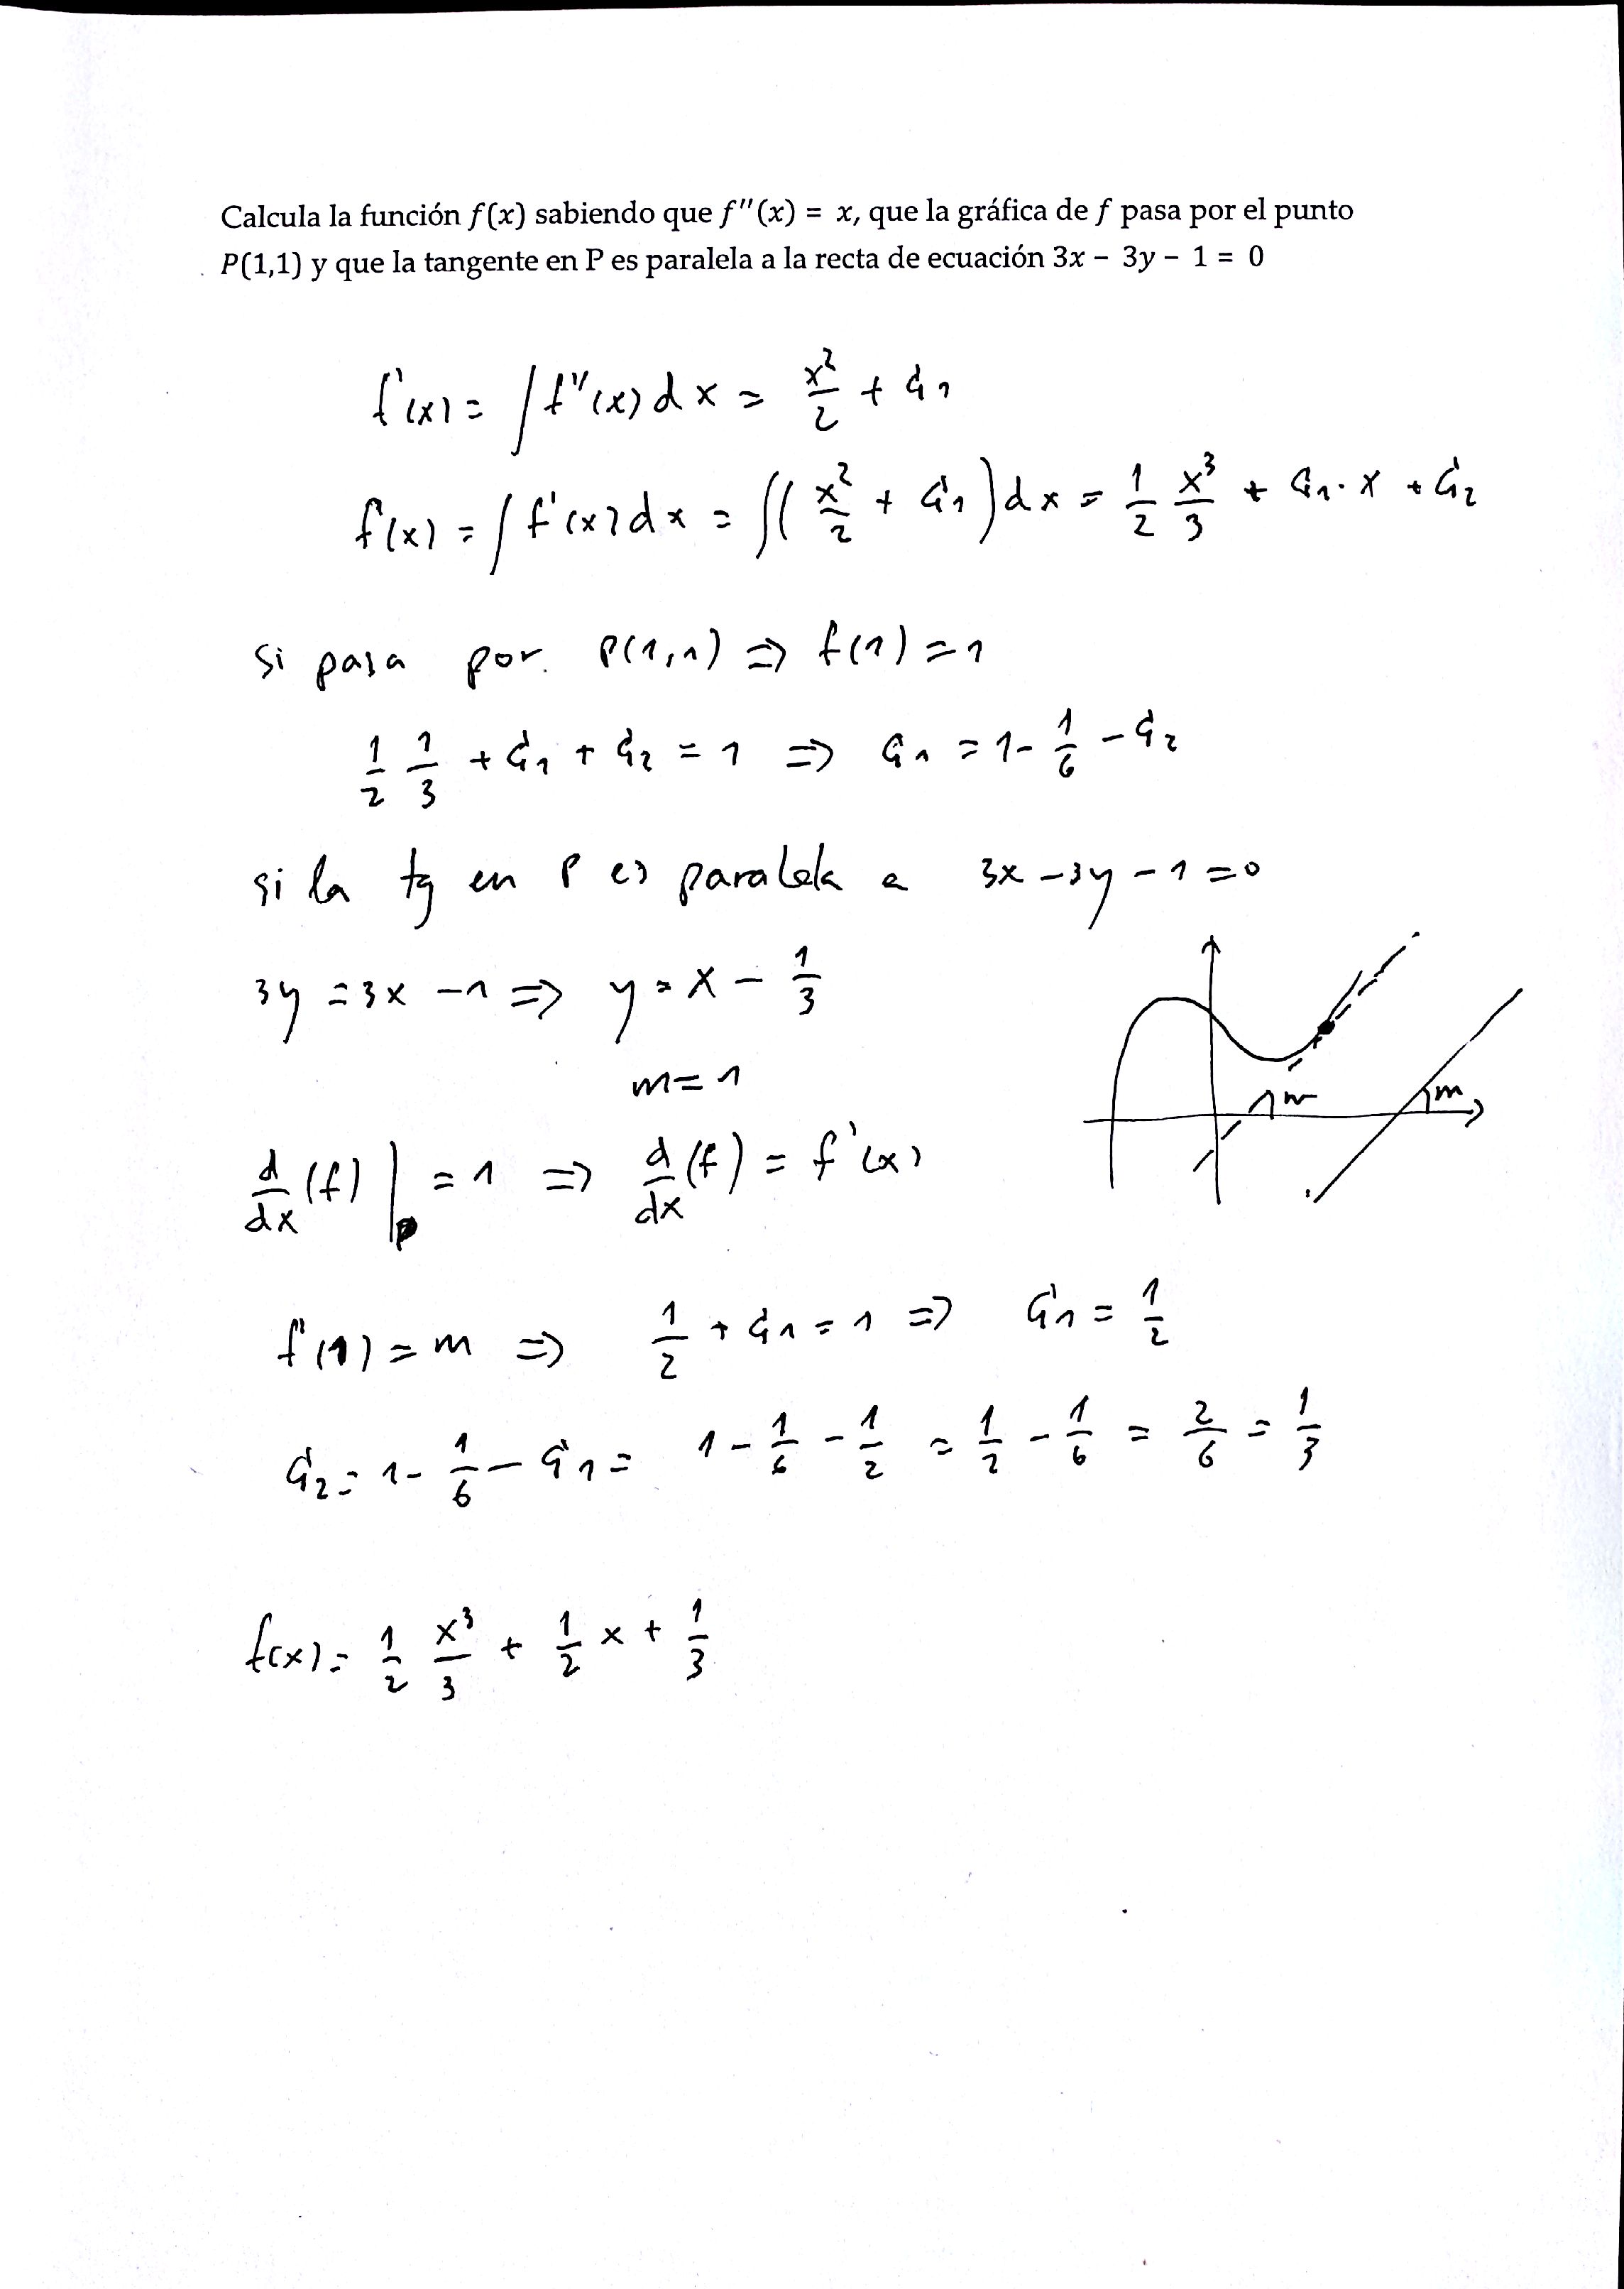 Calcula la función f(x) sabiendo que f''(x) = x, que la gráfica de f pasa por el punto
P(1,1) y que la tangente en P es paralela a la recta de ecuación 3x − 3y − 1 = 0
f'(x) = ∫ f''(x) dx = x²/2 + C₁
f(x) = ∫ f'(x) dx = ∫( x²/2 + C₁ ) dx = 1/2 x³/3 + C₁ · x + C₂
si pasa por P(1,1) ⇒ f(1) = 1
1/2 1/3 + C₁ + C₂ = 1 ⇒ C₁ = 1 - 1/6 - C₂
si la tg en P es paralela a 3x - 3y - 1 = 0
3y = 3x - 1 ⇒ y = x - 1/3
m = 1
m m
d/dx (f) |p = 1 ⇒ d/dx (f) = f'(x)
f'(1) = m ⇒ 1/2 + C₁ = 1 ⇒ C₁ = 1/2
C₂ = 1 - 1/6 - C₁ = 1 - 1/6 - 1/2 = 1/2 - 1/6 = 2/6 = 1/3
f(x) = 1/2 x³/3 + 1/2 x + 1/3